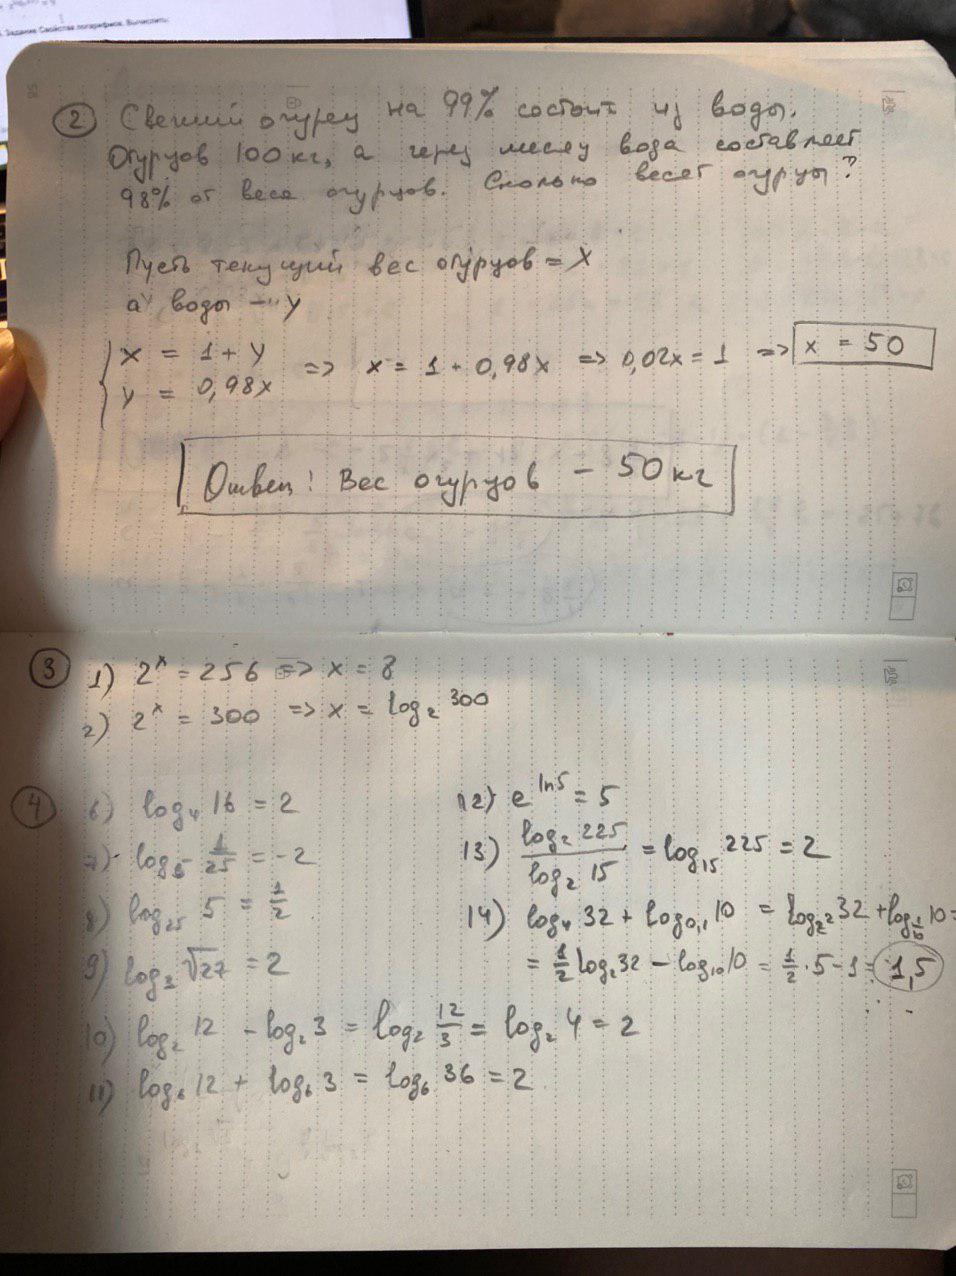 4. Задание Свойства логарифмов. Вычислить:
② Свежий огурец на 99% состоит из воды.
Огурцов 100 кг, а через месяц вода составляет
98% от веса огурцов. Сколько весят огурцы?
Пусть текущий вес огурцов = x
а воды –"– y
{ x = 1 + y
y = 0,98x => x = 1 + 0,98x => 0,02x = 1 => x = 50
Ответ: Вес огурцов – 50 кг
③ 1) 2^x = 256 => x = 8
2) 2^x = 300 => x = log₂ 300
④ 6) log₄ 16 = 2
7) log₅ 1/25 = -2
8) log₂₅ 5 = 1/2
9) log₃ √27 = 2
10) log₂ 12 - log₂ 3 = log₂ 12/3 = log₂ 4 = 2
11) log₆ 12 + log₆ 3 = log₆ 36 = 2
12) e^ln5 = 5
13) log₂ 225 / log₂ 15 = log₁₅ 225 = 2
14) log₄ 32 + log₀,₁ 10 = log_2² 32 + log_1/10 10 =
= 1/2 log₂ 32 - log₁₀ 10 = 1/2 · 5 - 1 = 1,5